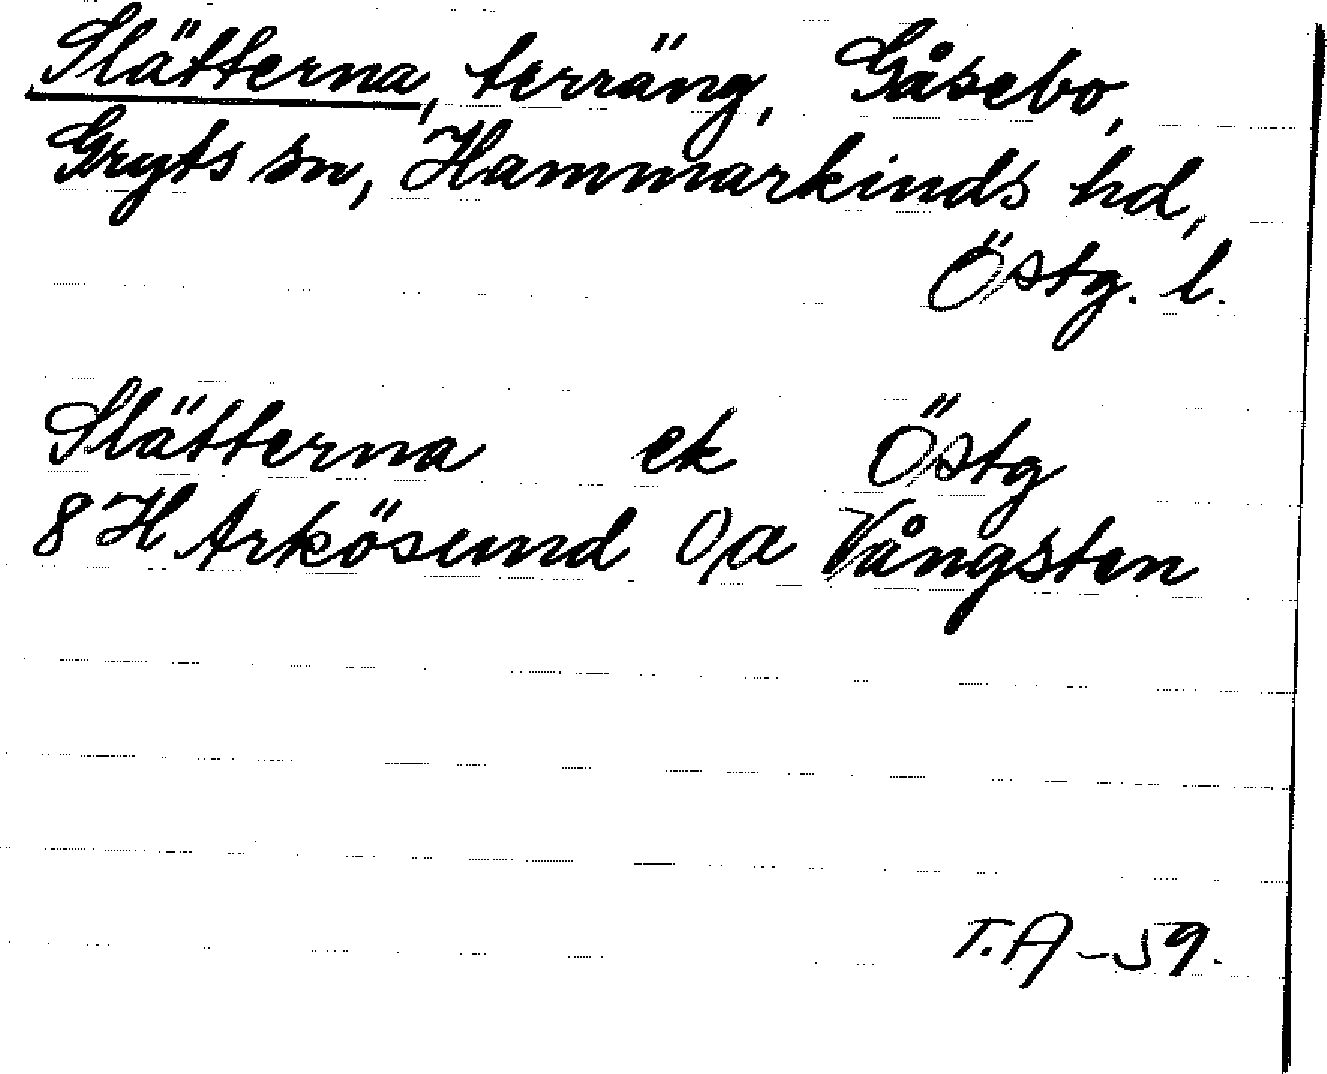 Slätterna, terräng, Gåsebo,
Gryts sn, Hammarkinds hd,
Östg. l.
Slätterna ek Östg
8 H Arkösund 0/a Vångsten
T.A -59.